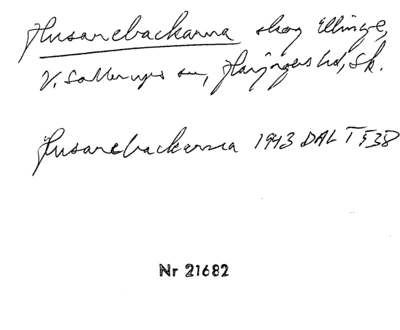 Husarebackarna skog Ellinge,
V. Sallerups sn, Harjagers hd, Sk.
Husarebackarna 1943 DAL T 538
Nr 21682